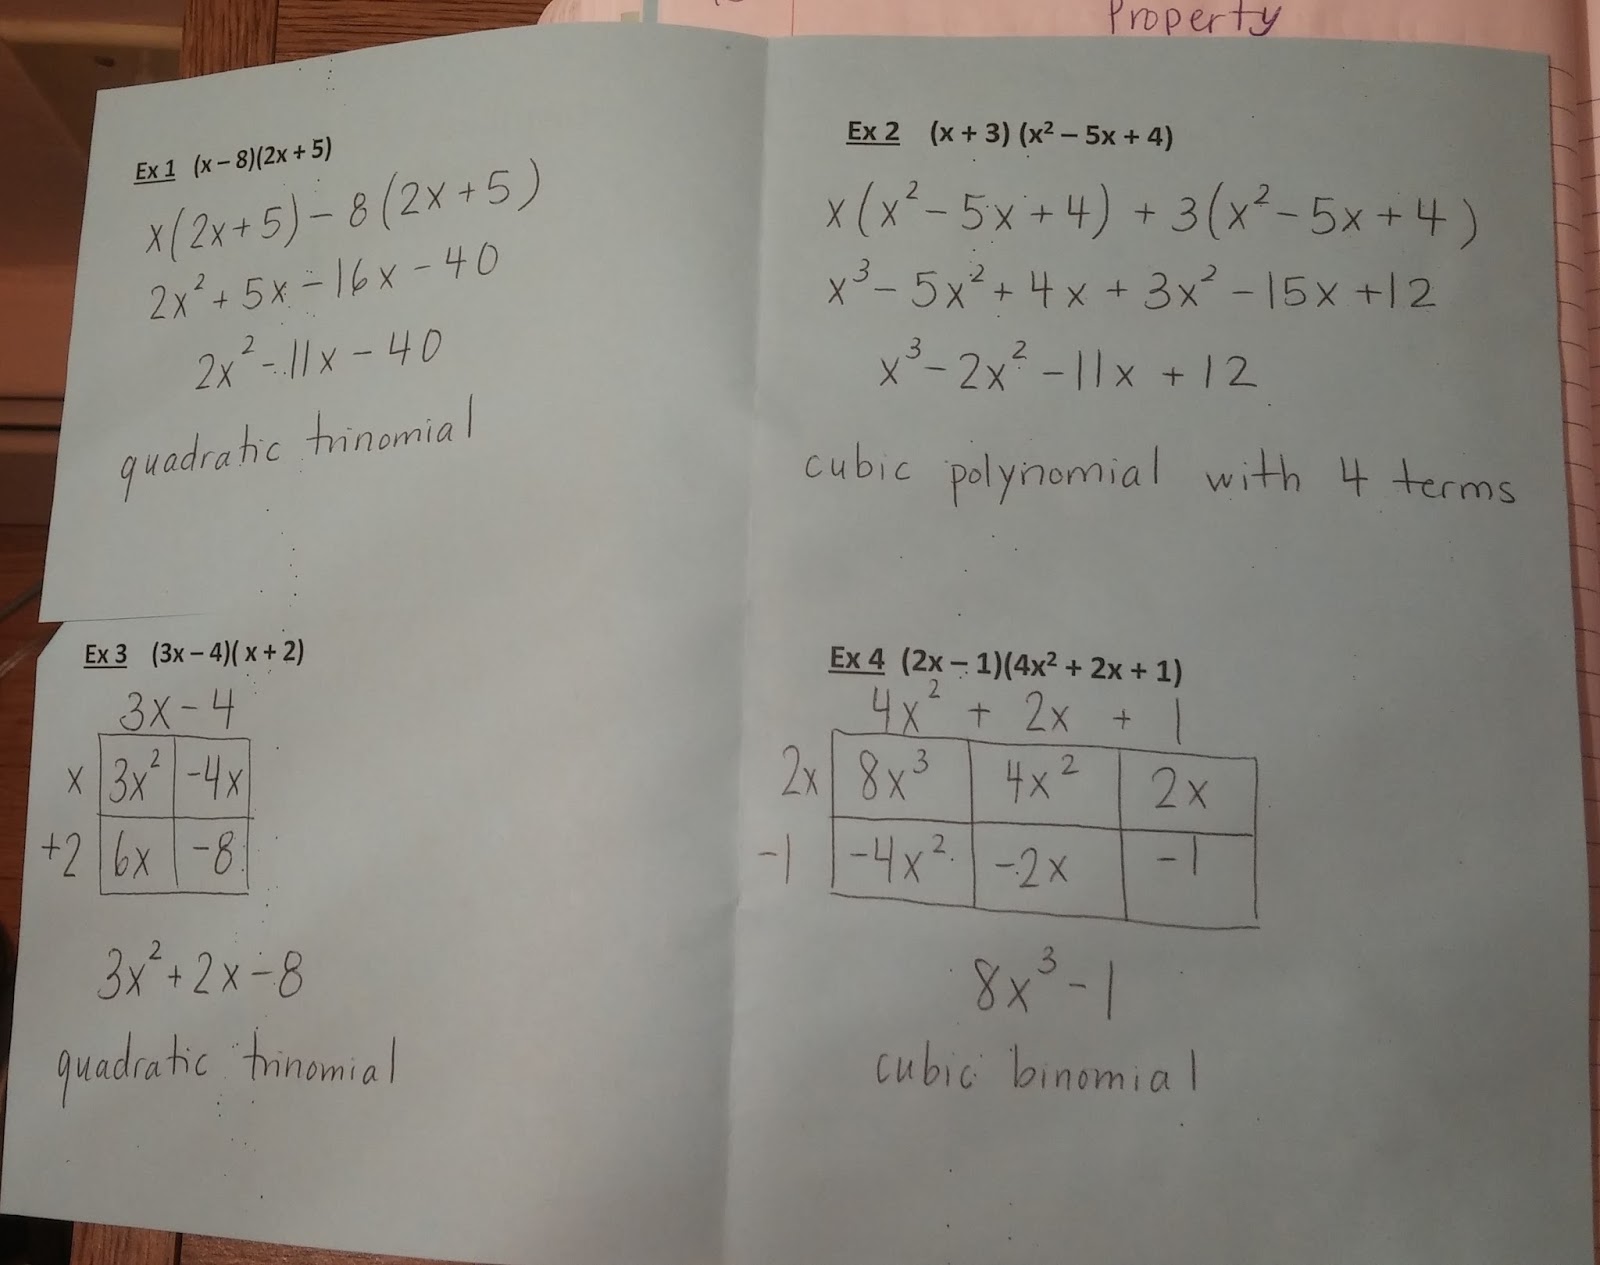 Property
Ex 1 (x – 8)(2x + 5)
x(2x+5) – 8(2x+5)
2x² + 5x – 16x – 40
2x² – 11x – 40
quadratic trinomial
Ex 2 (x + 3) (x² – 5x + 4)
x(x² – 5x + 4) + 3(x² – 5x + 4)
x³ – 5x² + 4x + 3x² – 15x + 12
x³ – 2x² – 11x + 12
cubic polynomial with 4 terms
Ex 3 (3x – 4)( x + 2)
3x – 4
x 3x² -4x
+2 6x -8
3x² + 2x – 8
quadratic trinomial
Ex 4 (2x – 1)(4x² + 2x + 1)
4x² + 2x + 1
2x 8x³ 4x² 2x
-1 -4x² -2x -1
8x³ – 1
cubic binomial